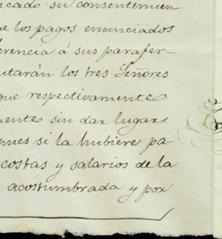 icado su consentimien
e los pagos enunciados
erencia á sus parafer-
utarán los tres Señores
que respectivamente
mente sin dar lugar
pues si la hubiere pa-
costas y salarios de la
acostumbrada y por